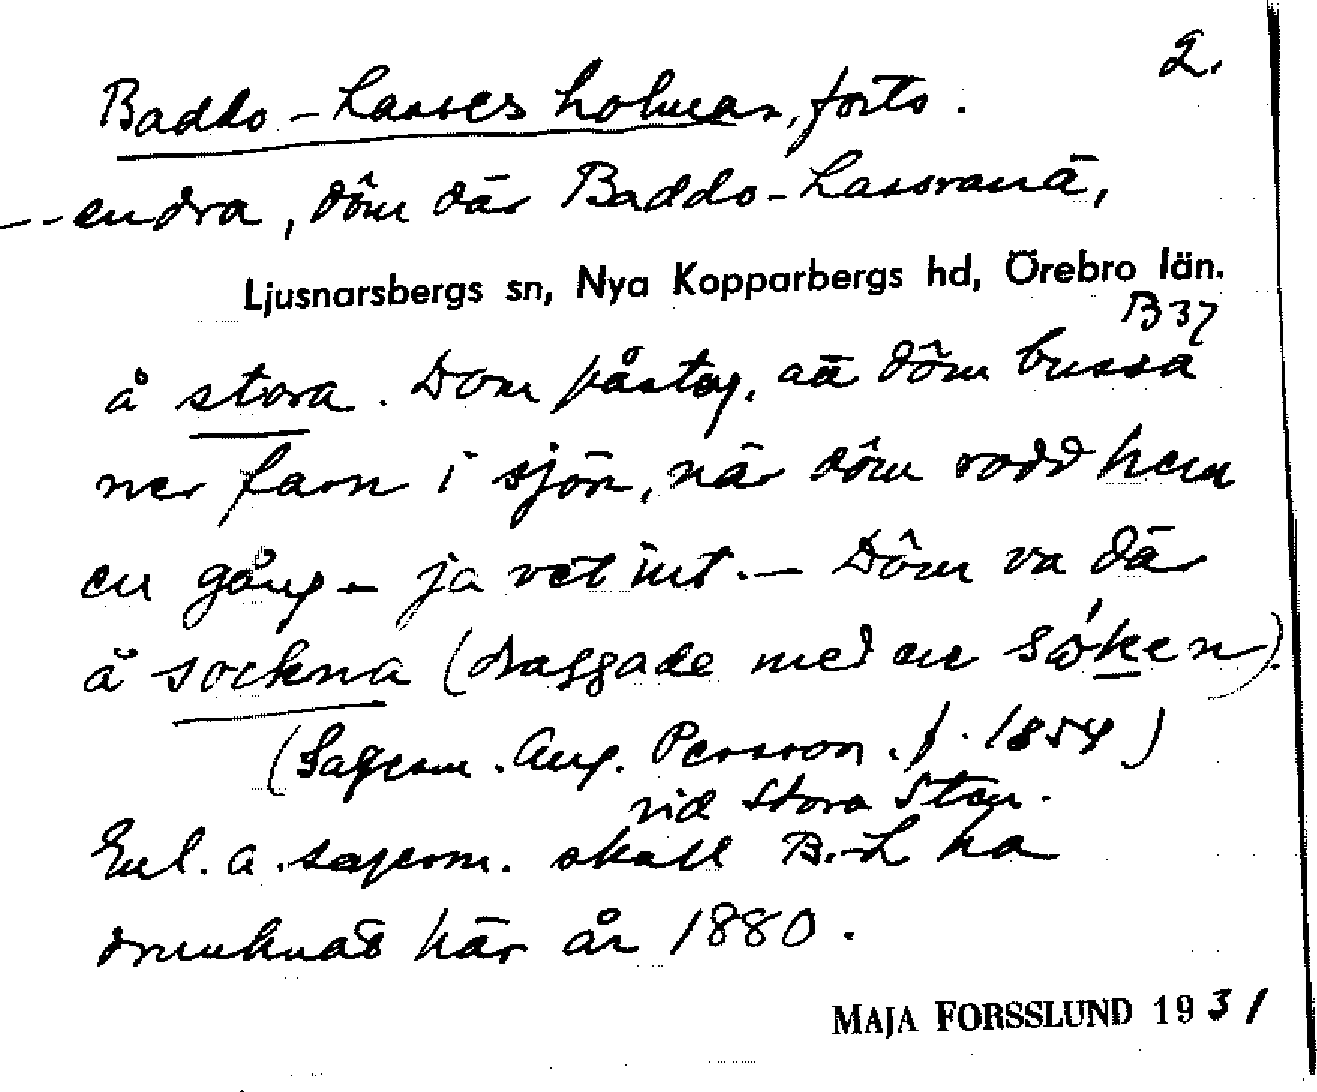 2.
Baddo-Lasses holmar, forts.
-- endra, dôm där Baddo-Lassranä,
Ljusnarsbergs sn, Nya Kopparbergs hd, Örebro län.
B 37
å stora. Dom påstog, aä dôm bussa
ner farn i sjön, när dôm rodd hem
en gång - ja vet int. - Dôm va där
å sockna (draggade med en söken).
(Sagesm. Aug. Persson. f. 1854)
vid Stora Sten.
Enl. a. sagesm. skall B.-L ha
drunknat här år 1880.
MAJA FORSSLUND 1931